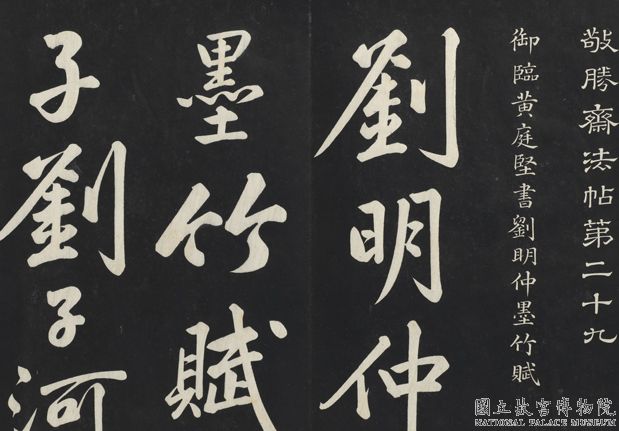 敬勝齋法帖第二十九
御臨黃庭堅書劉明仲墨竹賦
劉明仲
墨竹賦
子劉子河
國立故宮博物院
NATIONAL PALACE MUSEUM